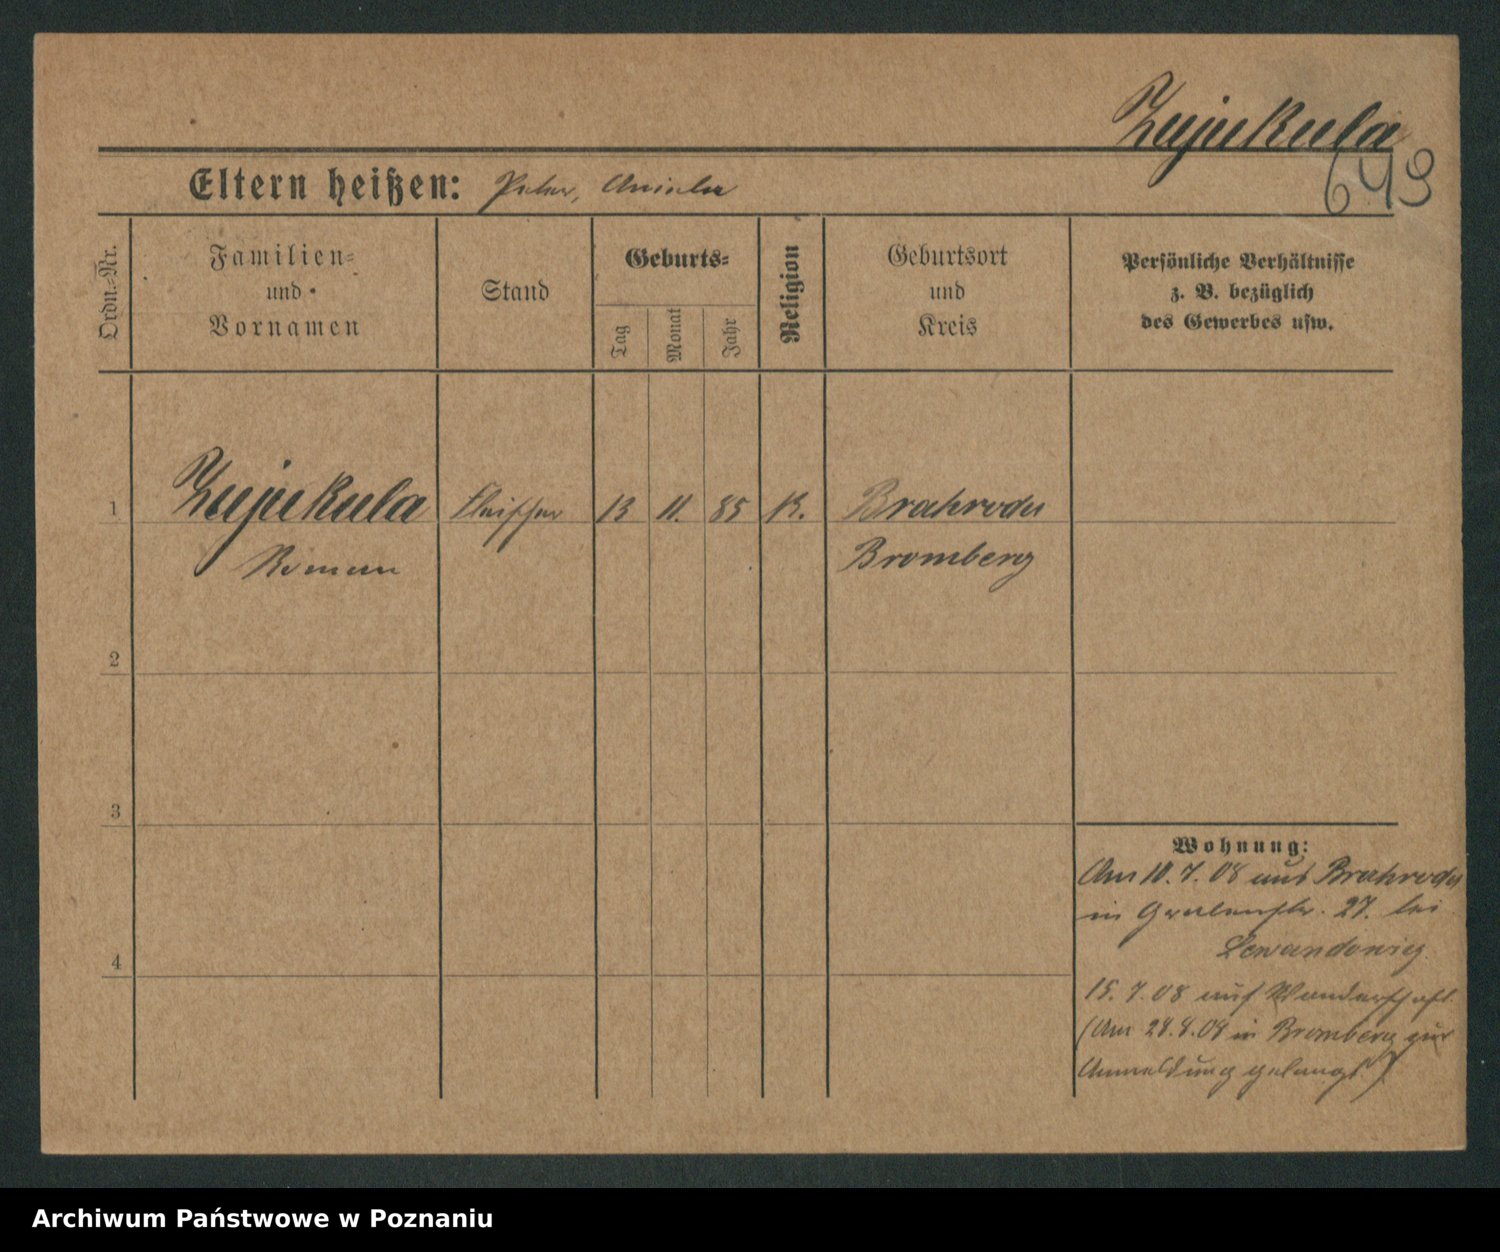 Zujukula
649
Eltern heißen: Peter, Aniela
Ordn.-Nr.
Familien-
und
Vornamen
Stand
Geburts-
Tag
Monat
Jahr
Religion
Geburtsort
und
Kreis
Persönliche Verhältnisse
z. B. bezüglich
des Gewerbes usw.
1 Zujukula Fleischer 13 11. 85 K. Brahrode
Roman Bromberg
2
3
4
Wohnung:
Am 10.7.08 aus Brahrode
in Grabenstr. 27. bei
Lewandowicz
15.7.08 auf Wanderschaft
(Am 28.8.08 in Bromberg zur
Anmeldung gelangt)
Archiwum Państwowe w Poznaniu